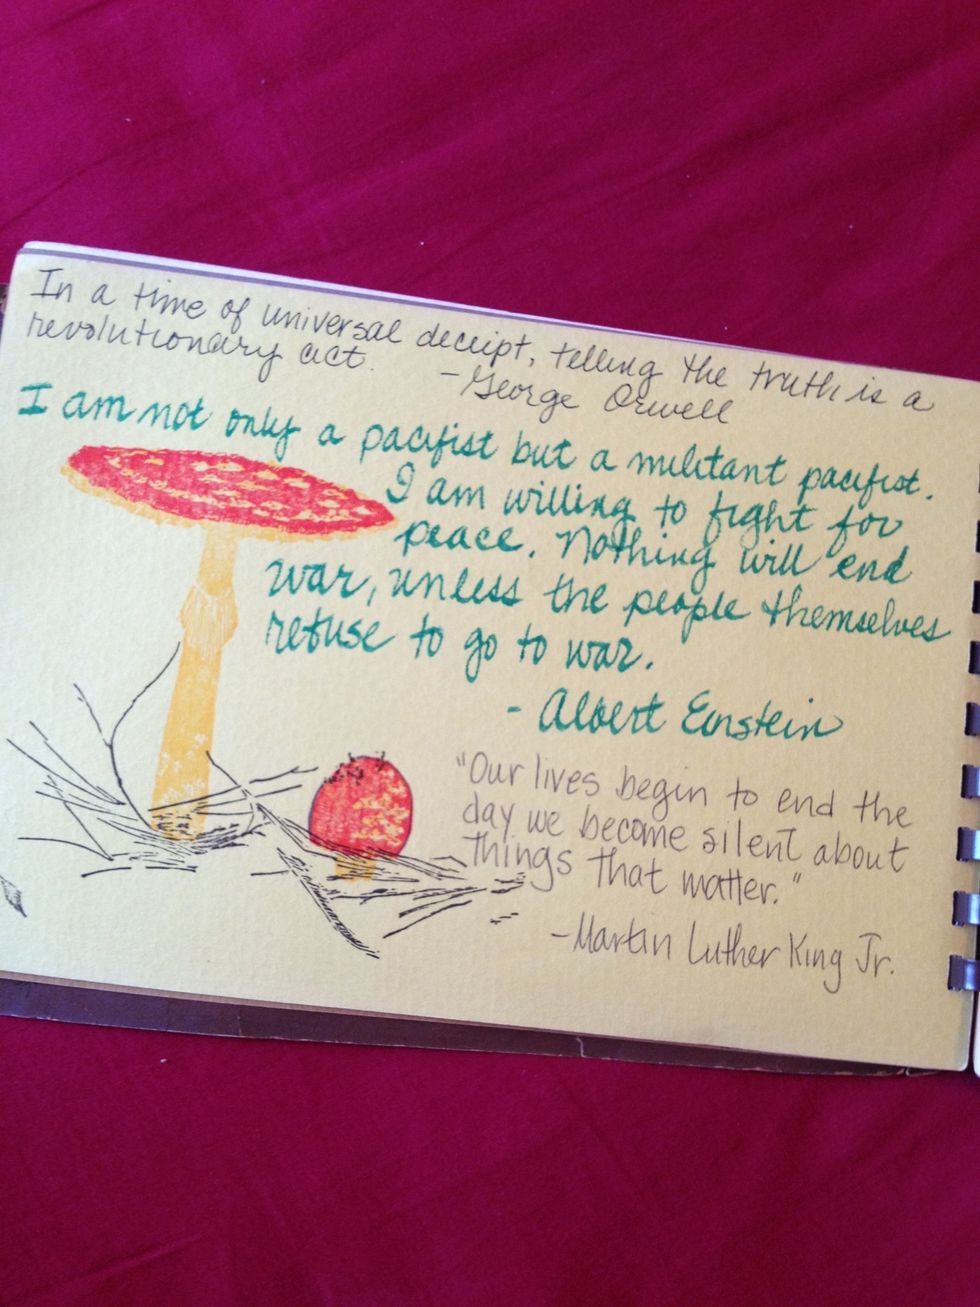 In a time of universal deceipt, telling the truth is a
revolutionary act.
-George Orwell
I am not only a pacifist but a militant pacifist.
I am willing to fight for
peace. Nothing will end
war, unless the people themselves
refuse to go to war.
- Albert Einstein
"Our lives begin to end the
day we become silent about
things that matter."
-Martin Luther King Jr.